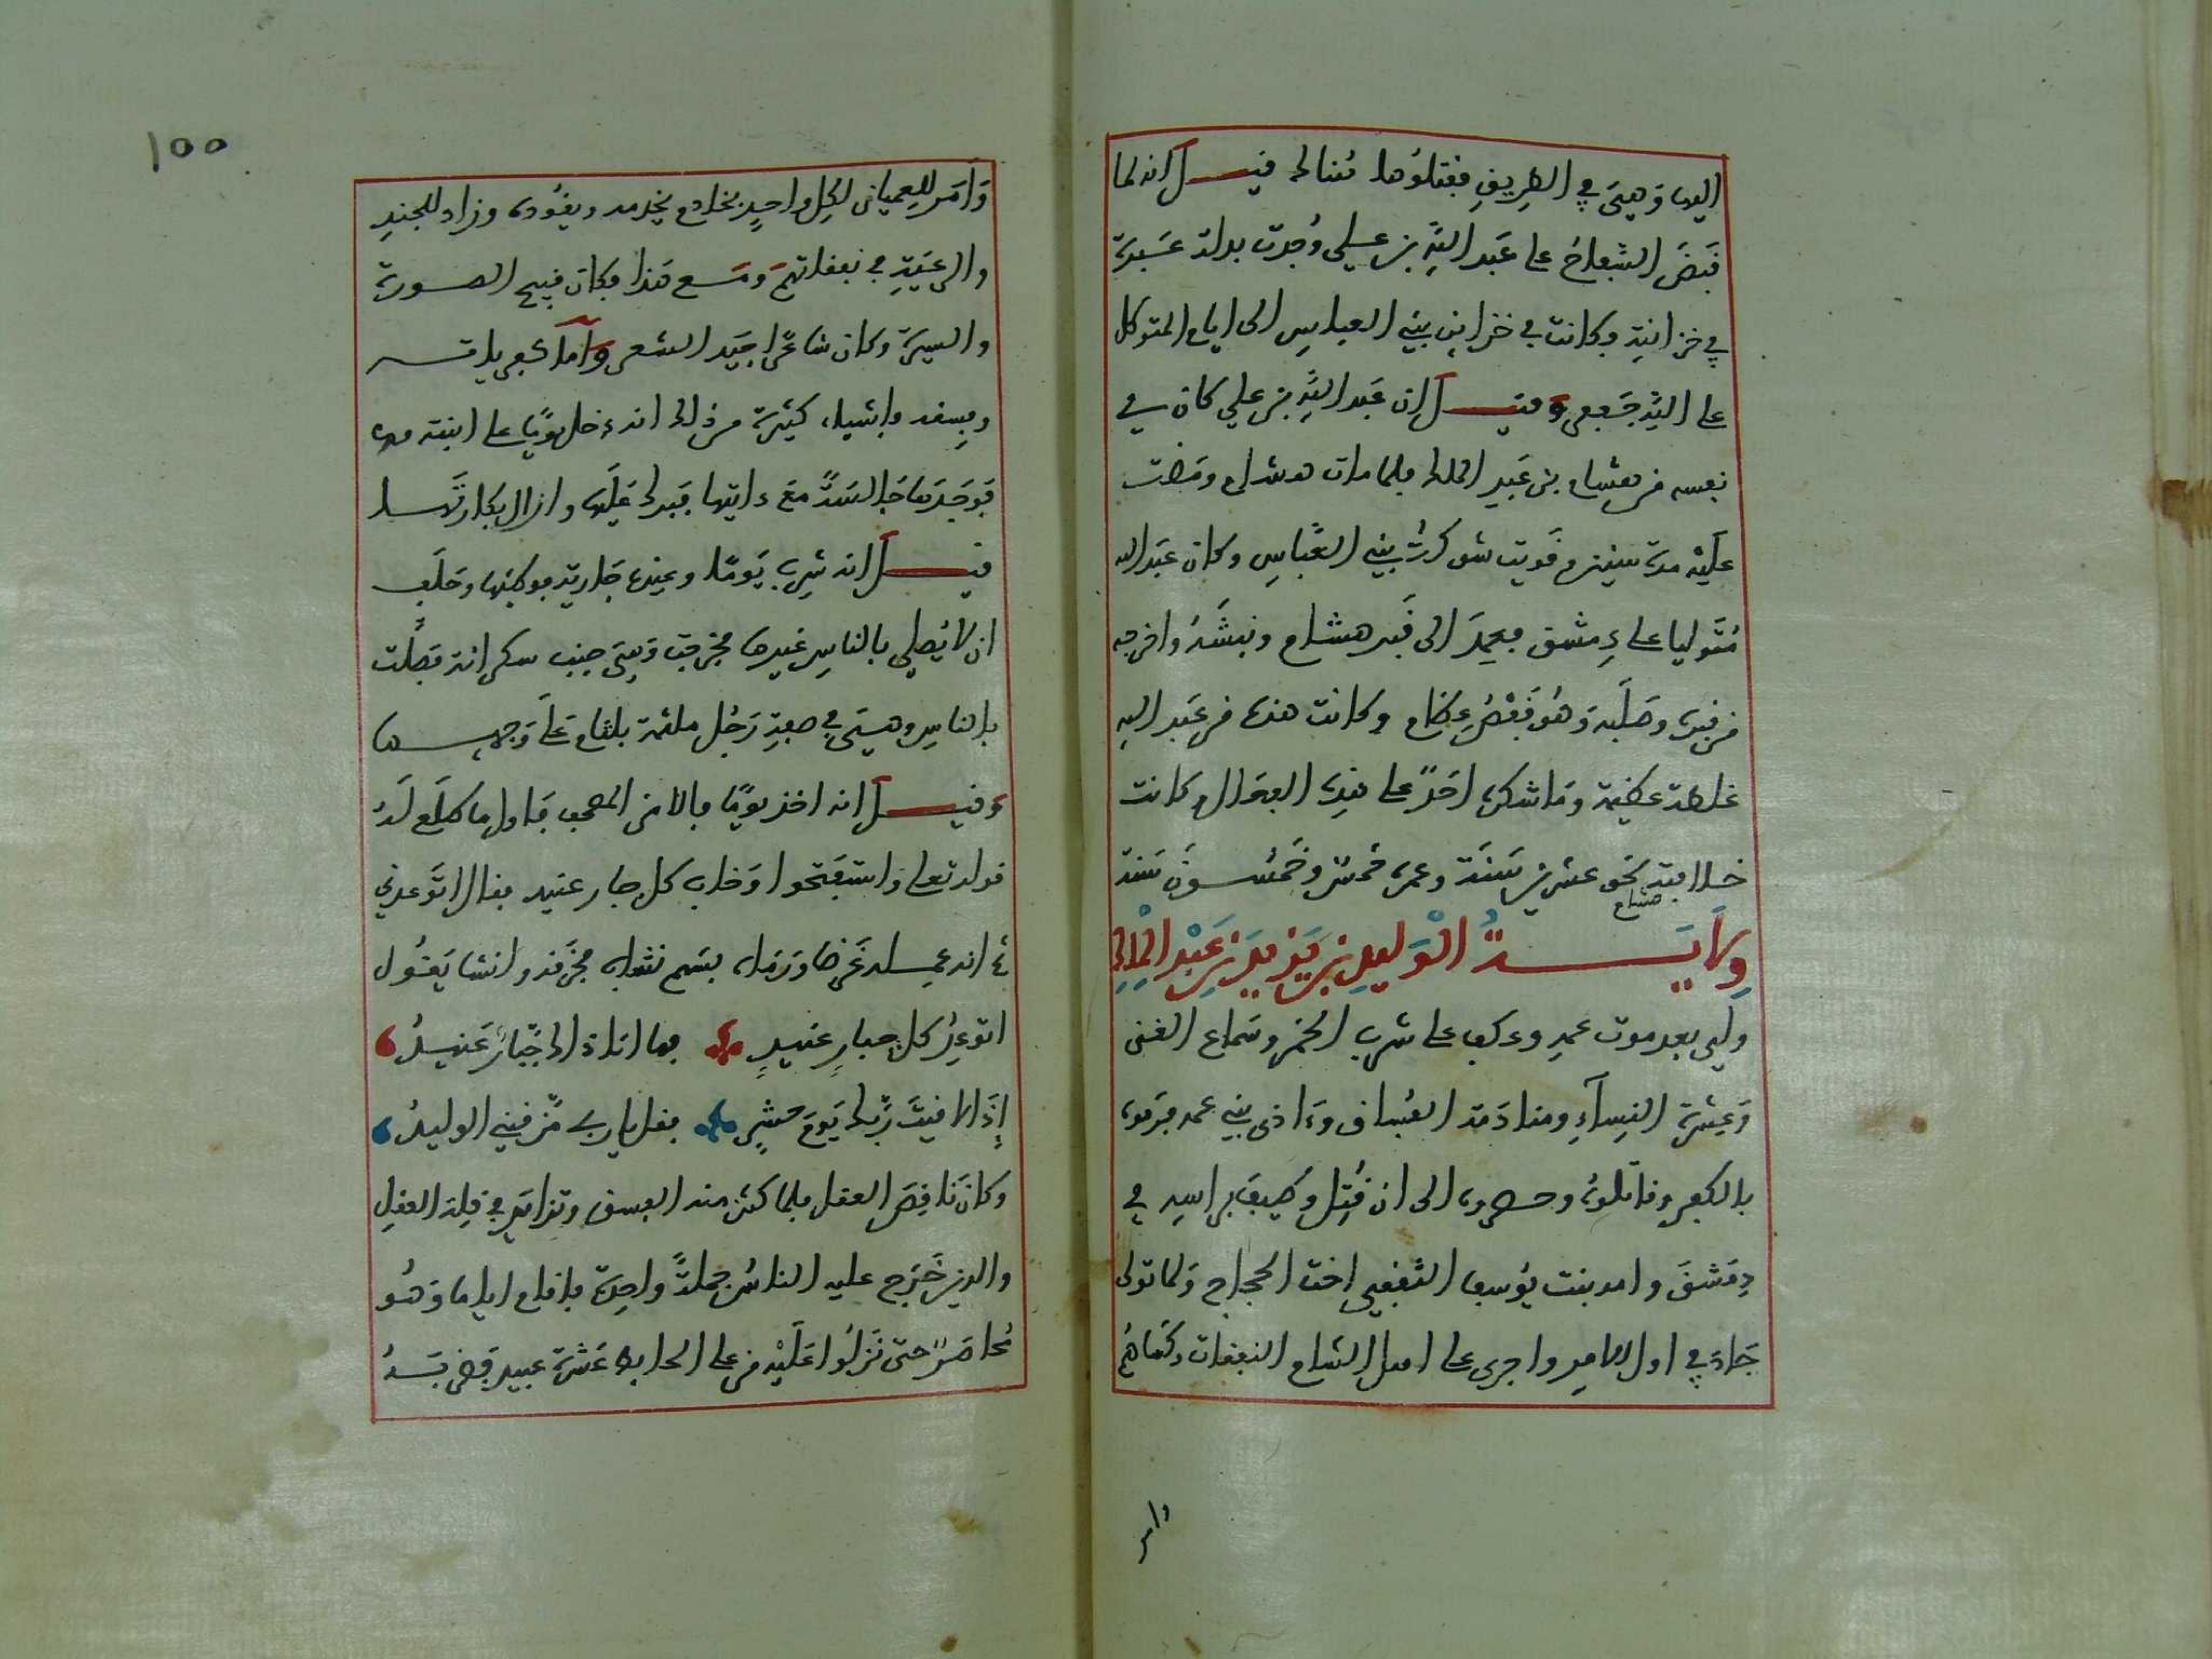 اليها وهي في الطريق فقتلوها هنالك قيل انه لما
قبض السفاح على عبد الله بن علي وجدت بدلة عبدة
في خزانته وكانت في خزاين بني العباس الى ايام المتوكل
على الله جعفر وقيل ان عبد الله بن علي كان في
نفسه من هشام بن عبد الملك فلما مات هشام ومضت
عليه مدة سنين وقويت شوكة بني العباس وكان عبد الله
متوليا على دمشق فعمد الى قبر هشام ونبشه واخرجه
من قبره وصلبه وهو بعض عظام وكانت هذه من عبد الله
غلطة عظيمة وما شكره احد على هذه الفعال وكانت
خلافته نحو عشرين سنة وعمره خمس وخمسون سنة
هشام
ولاية الوليد بن يزيد بن عبد الملك
ولي بعد موت عمه وعكف على شرب الخمر وسماع الغنى
وعشرة النساء ومنادمة الفساق وءاذى بني عمه فرموه
بالكفر وقاتلوه وحصروه الى ان قتل وطيف براسه في
دمشق وامه بنت يوسف الثقفي اخت الحجاج ولما تولى
جاد في اول الامر واجرى على اهل الشام النفقات وكساهم
وامر
١٥٥
وامر للعميان لكل واحد بخادم يخدمه ويقوده وزاد للجند
والرعية في نفقاتهم ومع هذا فكان قبيح الصورة
والسيرة وكان شاعرا جيد الشعر واما كفرياته
وفسقه فاشياء كثيرة من ذلك انه دخل يوما على ابنته
فوجدها جالسة مع دايتها فبرك عليها وازال بكارتها
قيل انه شرب يوما وعنده جارية فوطيها وحلف
ان لا يصلي بالناس غيرها فخرجت وهي جنب سكرانة فصلت
بالناس وهي في صفة رجل ملثمة بلثام على وجهها
وقيل انه اخذ يوما فالا من المصحف فاول ما طلع له
قوله تعالى واستفتحوا وخاب كل جبار عنيد فقال اتوعدني
ثم انه عمله غرضا ورماه بسهم نشاب فخرقه وانشا يقول
اتوعد كل جبار عنيد فها انا ذاك جبار عنيد
إذا لاقيت ربك يوم حشر فقل يارب مزقني الوليد
وكان ناقص العقل فلما كثر منه الفسق وتزايد في قلة العقل
والدين خرج عليه الناس جملة واحدة فاقام اياما وهو
محاصر حتى نزلوا عليه من على الحايط عشرة عبيد